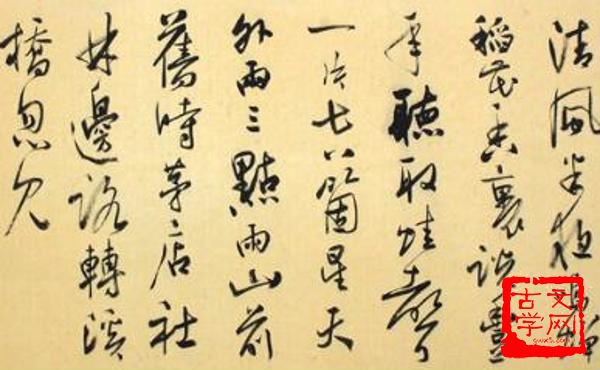 清風半夜鳴蟬
稻花香裏說豐
年聽取蛙聲
一片七八箇星天
外兩三點雨山前
舊時茅店社
林邊路轉溪
橋忽見
古文
学网